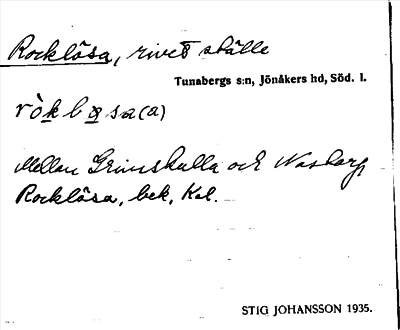 Rocklösa, rivet ställe
Tunabergs s:n, Jönåkers hd, Söd. l.
Mellan Grinshulla och
Rocklösa, bek. Kal.
STIG JOHANSSON 1935.